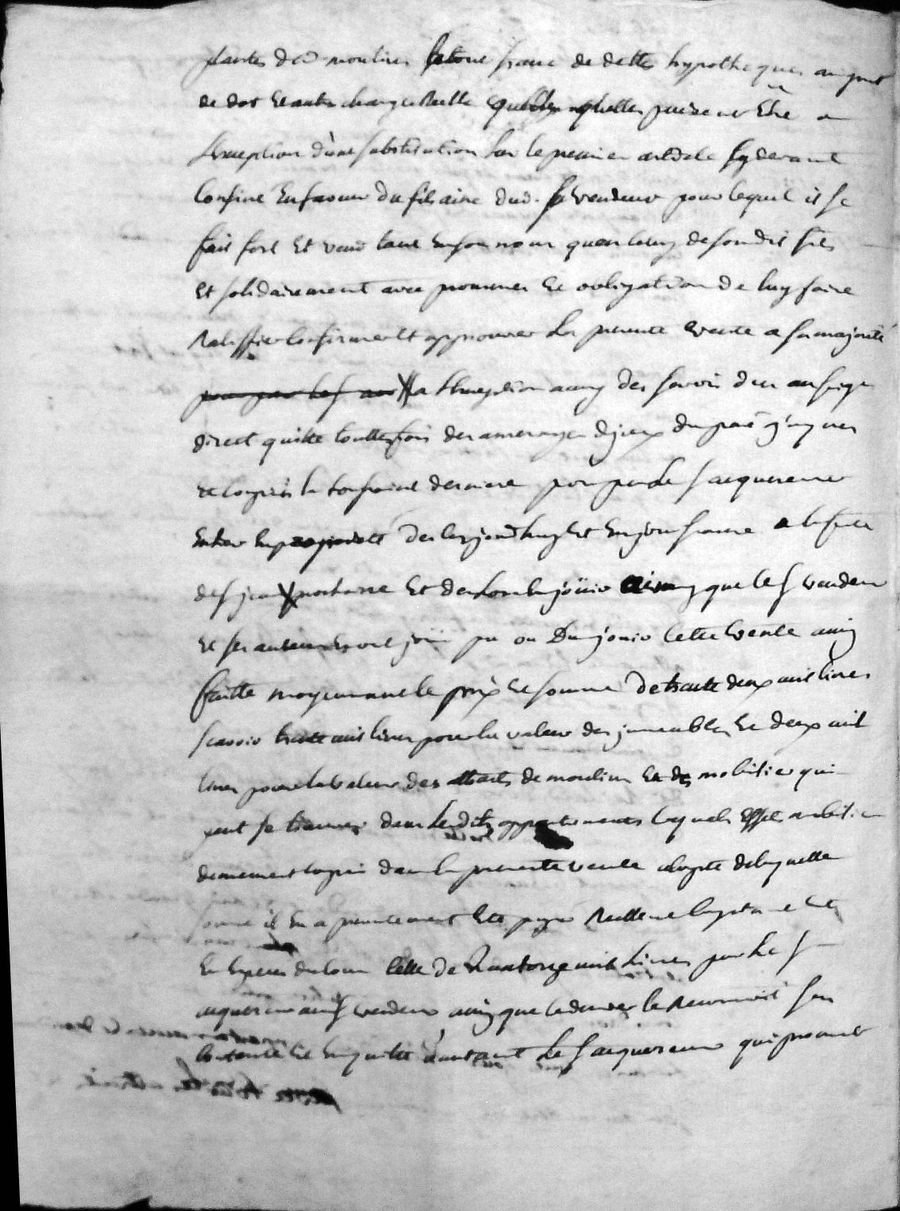 plantes de moulins le tout franc de dettes hypotheques
de dot et autre charge Reelle quelles puisent etre a
l'exception d'une substitution sur le premier article sy devant
confiné en faveur du fils aine dud. sr vendeur pour lequel il se
fait fort et vend tant en son nom qu'en celuy de son dit fils
et solidairement avec promesse et obligation de luy faire
Ratiffier confirmer et approuver la presente vente a sa majorité
a l'exception aussy des servis deus au seigr
direct quitte touttesfois des arrerages d'jceux du passé jusques
et compris la derniere pour par le sr acquereur
entrer en propriété des aujourd'huy et en jouissance a la feste
de st jean prochaine et des lors en jouir ainsy que le sr vendeur
et ses auteurs ont joui pu ou du jouir cette vente ainsy
faitte moyennant le prix et somme de trante deux mil livres
scavoir trante mil livres pour la valeur des jmmeubles et deux mil
livres pour la valeur des de moulin et de mobilier qui
peut se trouver dans les dits appartements lequels effets mobilie
demeurent compris dans la presente vente a compte de laquelle
somme il en a presentement eté payé Reellement et
en especes du cour celle de quatorze mil livres par le sr
acquereur au sr vendeur ainsy que ce dernier le Reconnoit s'en
contente et en quitte d'autant le sr acquereur qui promet